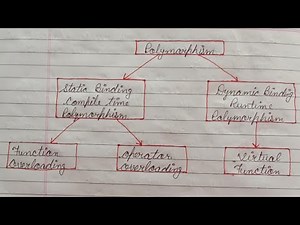 Polymorphism
Static Binding
Compile time
Polymorphism
Dynamic Binding
Runtime
Polymorphism
Function
overloading
operator
overloading
Virtual
Function